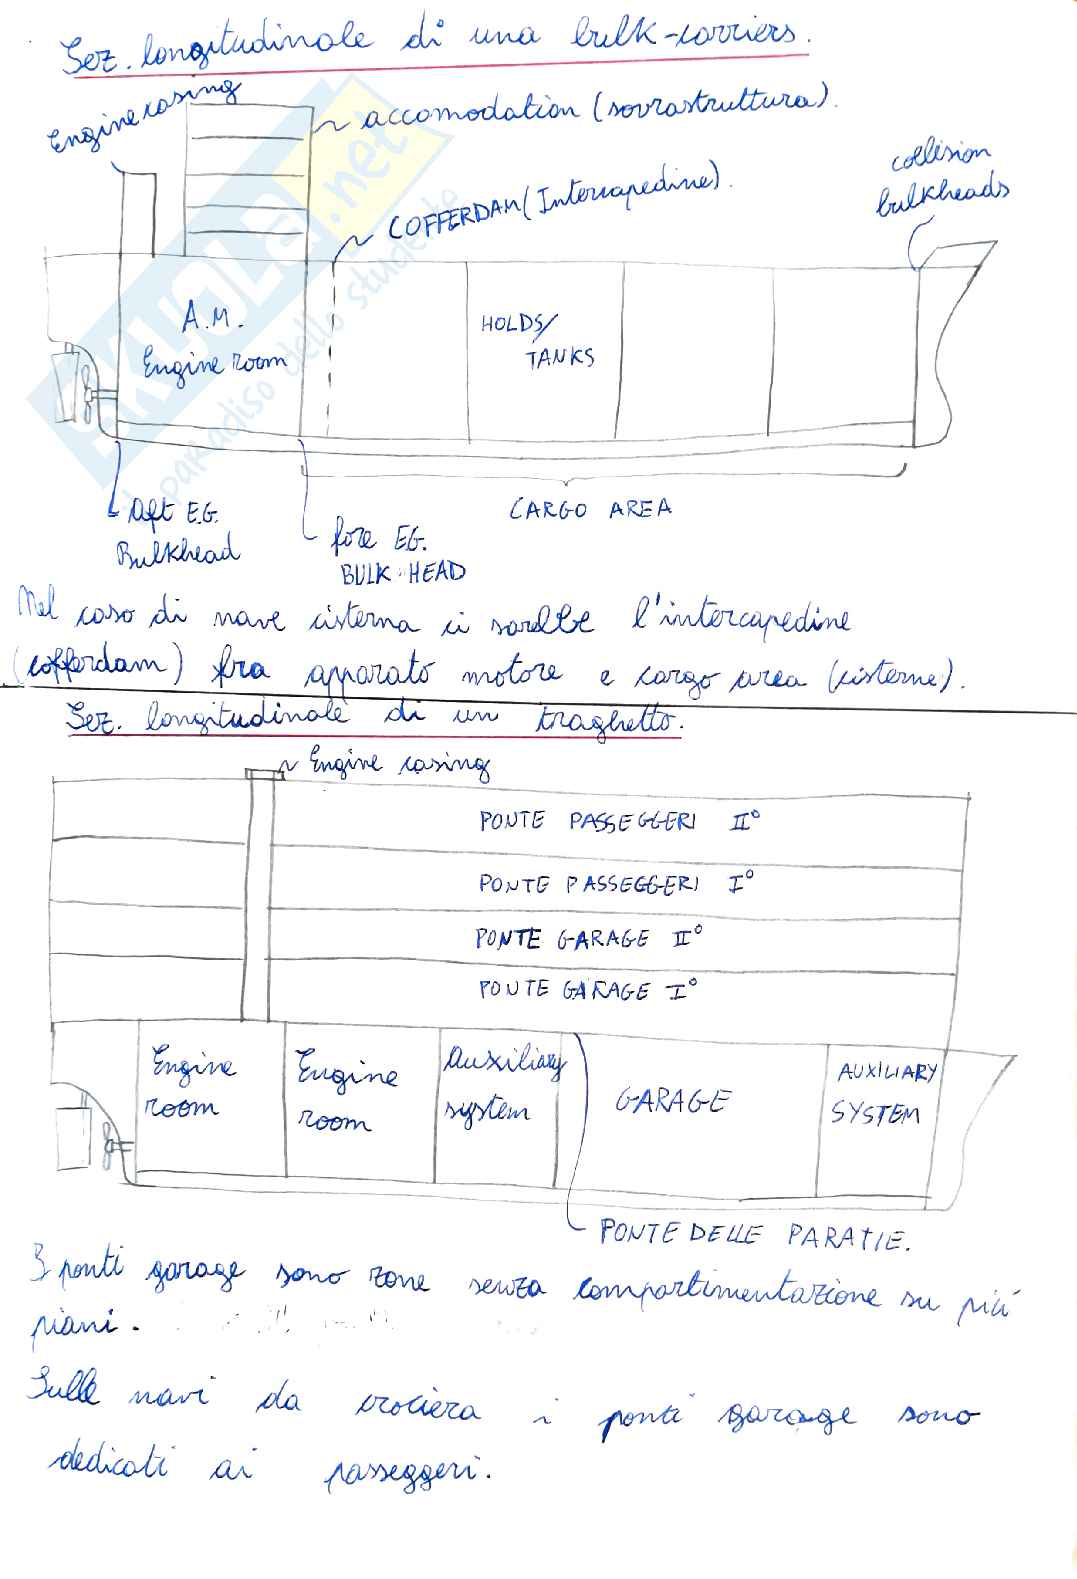 Sez. longitudinale di una bulk-carriers.
Engine casing
accomodation (sovrastruttura).
COFFERDAM (Intercapedine).
collision
bulkheads
A.M.
Engine room
HOLDS/
TANKS
CARGO AREA
Aft E.G.
Bulkhead
fore EG.
BULK-HEAD
Nel caso di nave cisterna ci sarebbe l'intercapedine
(cofferdam) fra apparato motore e cargo area (cisterne).
Sez. longitudinale di un traghetto.
Engine casing
PONTE PASSEGGERI II°
PONTE PASSEGGERI I°
PONTE GARAGE II°
PONTE GARAGE I°
Engine
room
Engine
room
Auxiliary
system
GARAGE
AUXILIARY
SYSTEM
PONTE DELLE PARATIE.
I ponti garage sono zone senza compartimentazione su più
piani.
Sulle navi da crociera i ponti garage sono
dedicati ai passeggeri.
SKUOLA.net
il paradiso dello studente